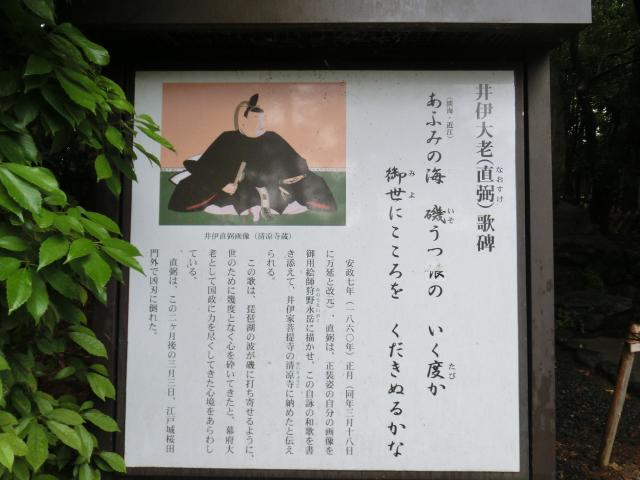 井伊大老(直弼)歌碑
なおすけ
(淡海・近江)
あふみの海 磯うつ浪の いく度か
いそ
たび
御世にこころを くだきぬるかな
みよ
井伊直弼画像(清凉寺蔵)
安政七年(一八六〇年)正月(同年三月十八日
に万延と改元)、直弼は、正装姿の自分の画像を
御用絵師狩野永岳に描かせ、この自詠の和歌を書
き添えて、井伊家菩提寺の清凉寺に納めたと伝え
られる。
この歌は、琵琶湖の波が磯に打ち寄せるように、
世のために幾度となく心を砕いてきたと、幕府大
老として国政に力を尽くしてきた心境をあらわし
ている。
直弼は、この二ヶ月後の三月三日、江戸城桜田
門外で凶刃に倒れた。